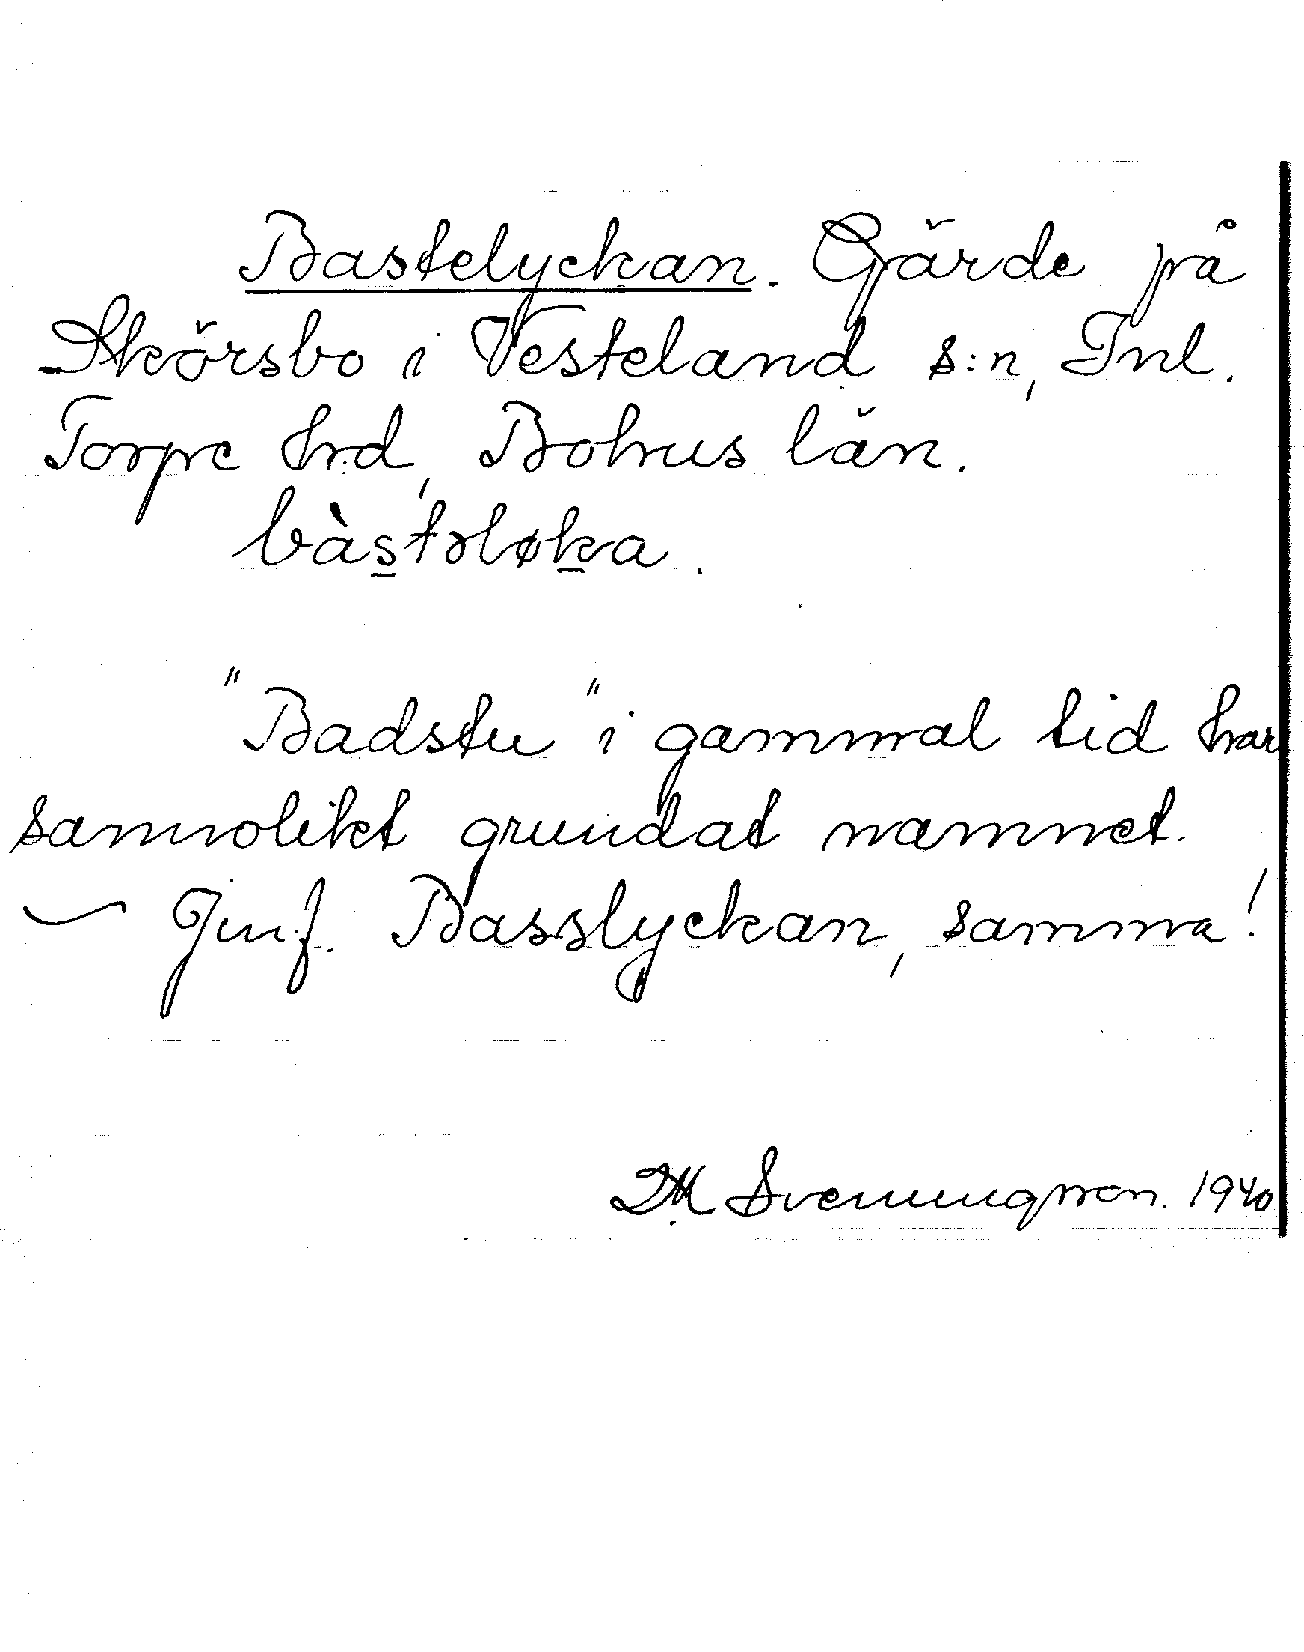 Bastelyckan. Gärde på
Skörsbo i Vesteland s:n, Inl.
Torpe hrd, Bohus län.
bàstəløka.
"Badstu" i gammal tid har
sannolikt grundat namnet.
— Jmf. Basslyckan, samma!
DM Svenungsson. 1940